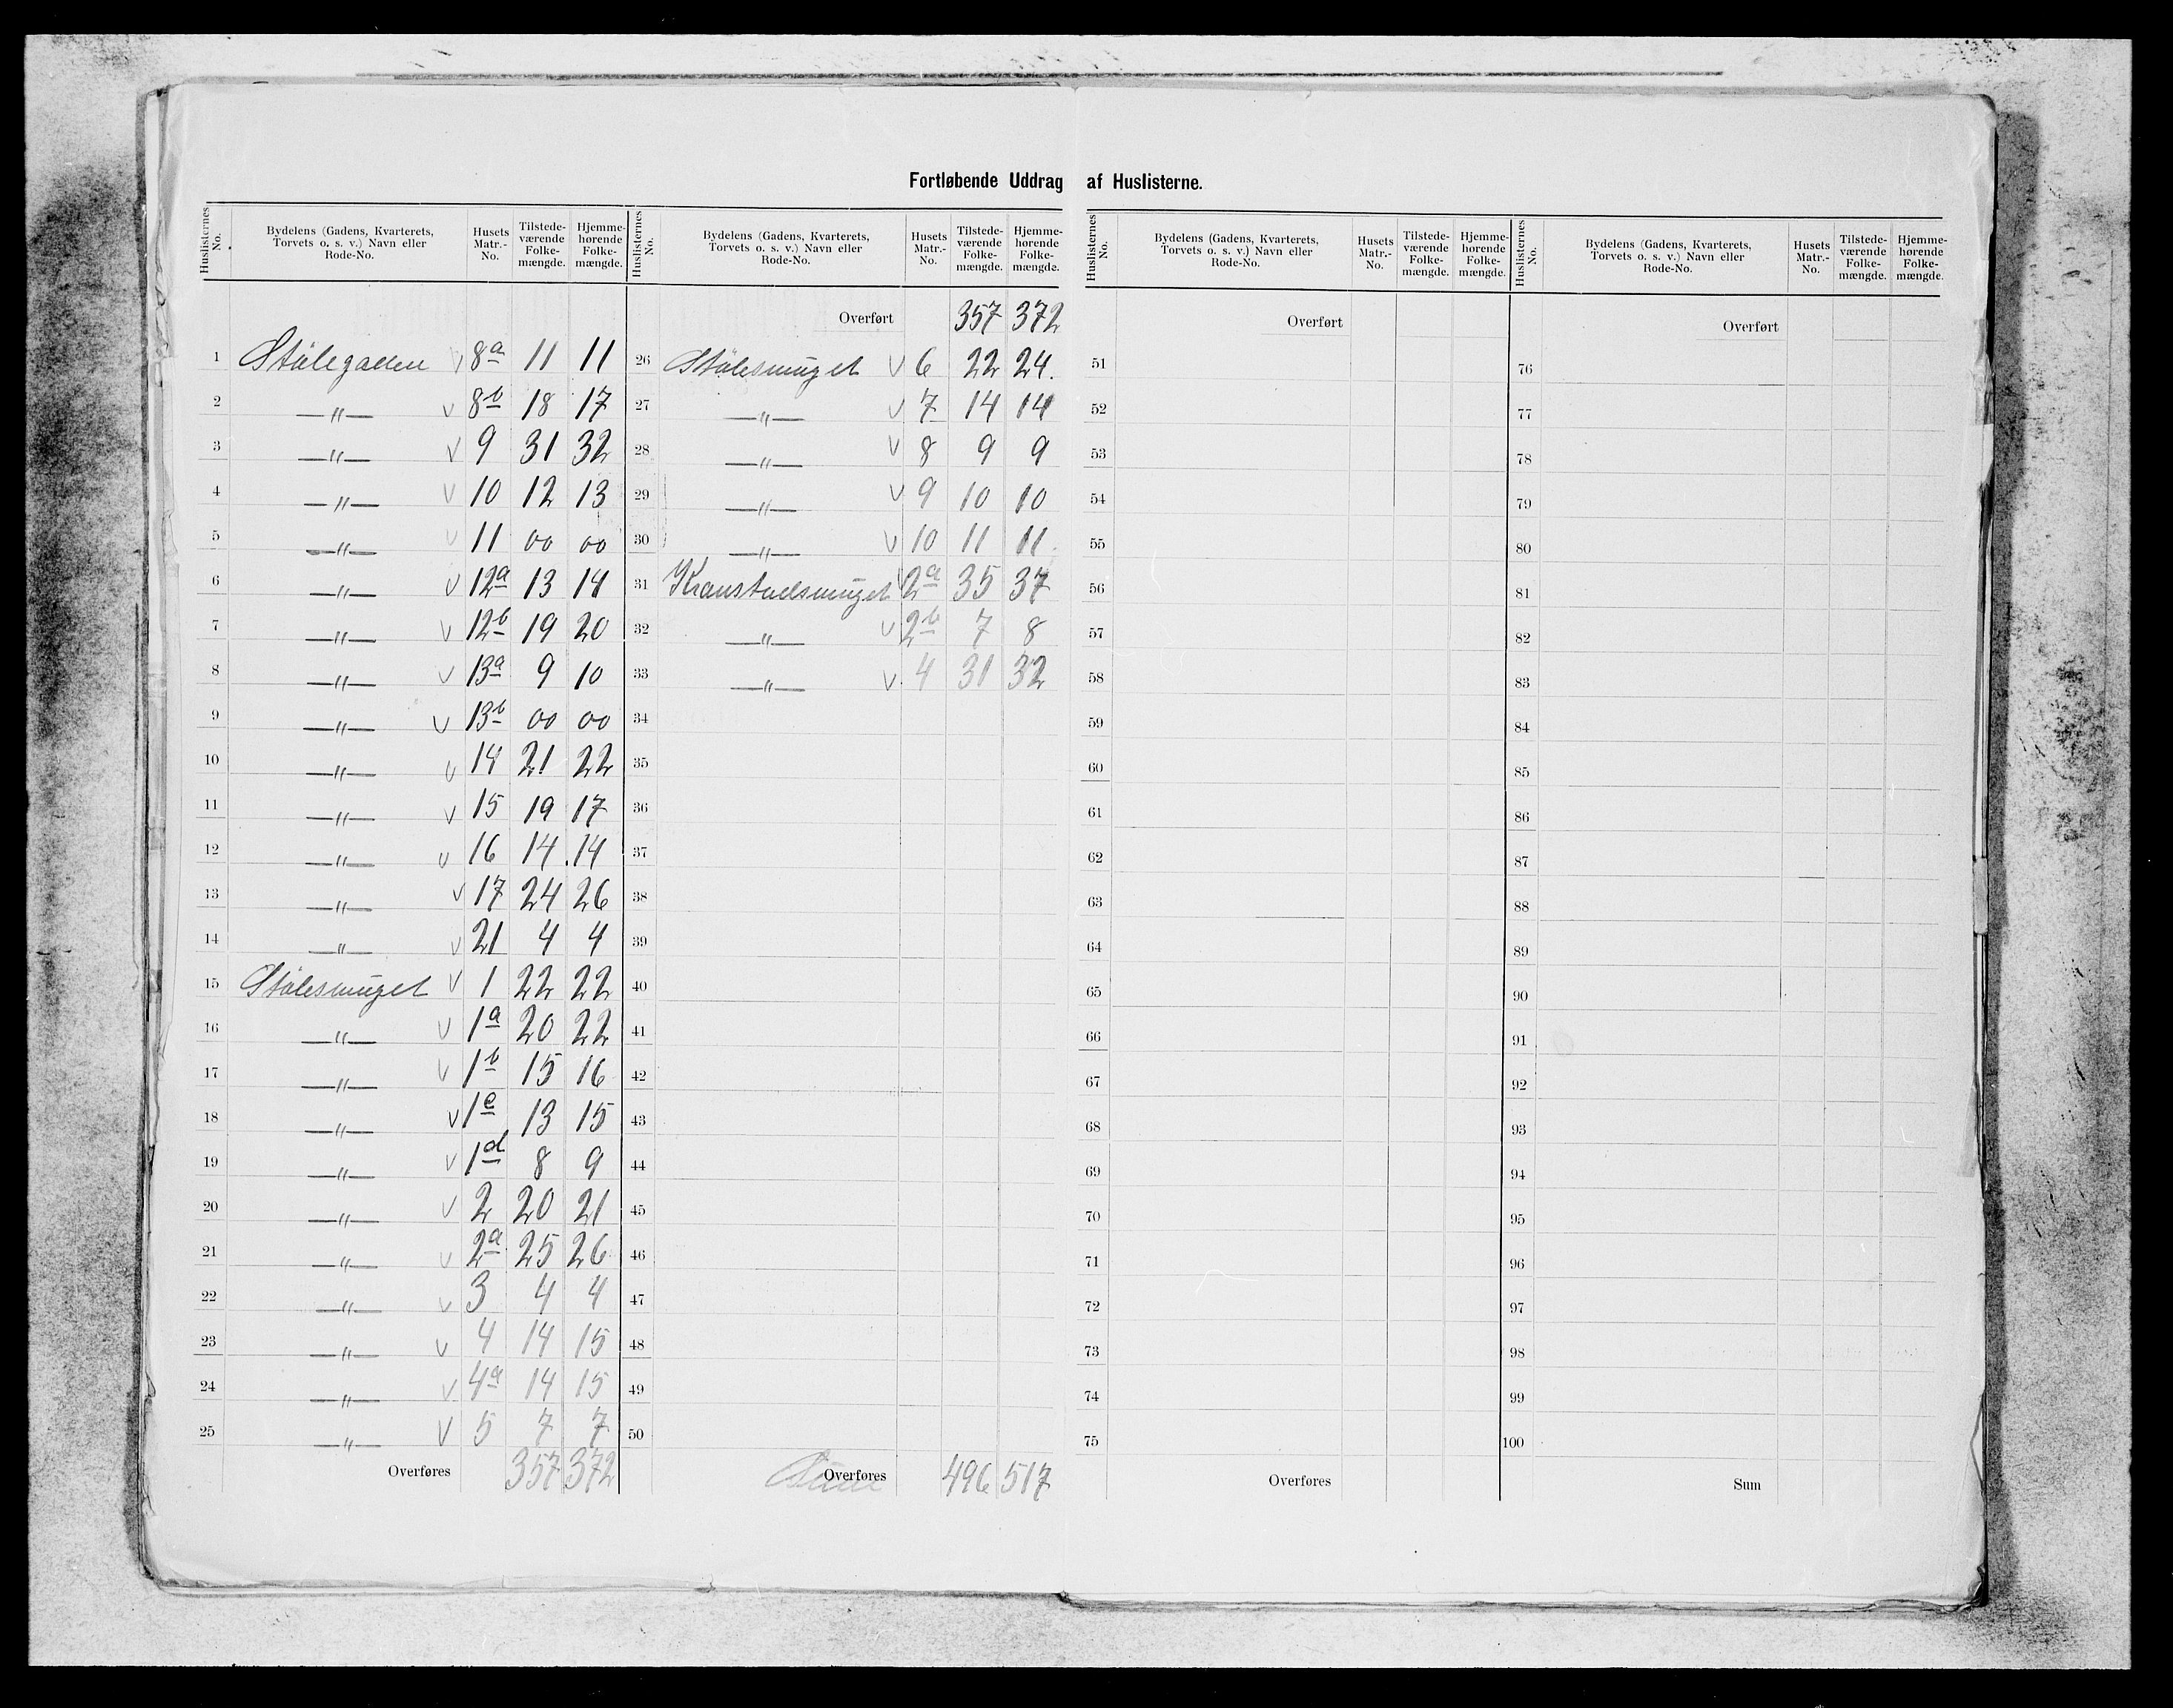 Fortløbende Uddrag af Huslisterne.
Huslisternes No. Bydelens (Gadens, Kvarterets, Torvets o. s. v.) Navn eller Rode-No. Husets Matr.-No. Tilstede-værende Folke-mængde. Hjemme-hørende Folke-mængde.
1 Stølegaden V 8a 11 11
2 —"— V 8b 18 17
3 —"— V 9 31 32
4 —"— V 10 12 13
5 —"— V 11 00 00
6 —"— V 12a 13 14
7 —"— V 12b 19 20
8 —"— V 13a 9 10
9 —"— V 13b 00 00
10 —"— V 14 21 22
11 —"— V 15 19 17
12 —"— V 16 14 14
13 —"— V 17 24 26
14 —"— V 21 4 4
15 Stølesmuget V 1 22 22
16 —"— V 1a 20 22
17 —"— V 1b 15 16
18 —"— V 1c 13 15
19 —"— V 1d 8 9
20 —"— V 2 20 21
21 —"— V 2a 25 26
22 —"— V 3 4 4
23 —"— V 4 14 15
24 —"— V 4a 14 15
25 —"— V 5 7 7
Overføres 357 372
Huslisternes No. Bydelens (Gadens, Kvarterets, Torvets o. s. v.) Navn eller Rode-No. Husets Matr.-No. Tilstede-værende Folke-mængde. Hjemme-hørende Folke-mængde.
Overført 357 372
26 Stølesmuget V 6 22 24.
27 —"— V 7 14 14
28 —"— V 8 9 9
29 —"— V 9 10 10
30 —"— V 10 11 11
31 Kronstadsmuget V 2a 35 37
32 —"— V 2b 7 8
33 —"— V 4 31 32
34
35
36
37
38
39
40
41
42
43
44
45
46
47
48
49
50
Overføres 496 517
Huslisternes No. Bydelens (Gadens, Kvarterets, Torvets o. s. v.) Navn eller Rode-No. Husets Matr.-No. Tilstede-værende Folke-mængde. Hjemme-hørende Folke-mængde.
Overført
51
52
53
54
55
56
57
58
59
60
61
62
63
64
65
66
67
68
69
70
71
72
73
74
75
Overføres
Huslisternes No. Bydelens (Gadens, Kvarterets, Torvets o. s. v.) Navn eller Rode-No. Husets Matr.-No. Tilstede-værende Folke-mængde. Hjemme-hørende Folke-mængde.
Overført
76
77
78
79
80
81
82
83
84
85
86
87
88
89
90
91
92
93
94
95
96
97
98
99
100
Sum